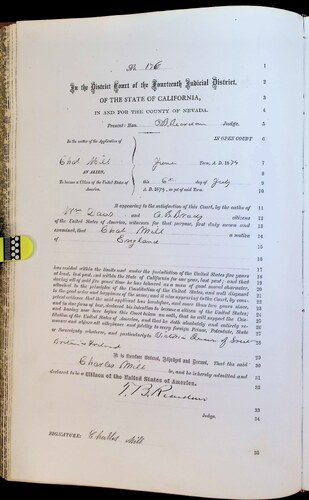 No 176
In the District Court of the Fourteenth Judicial District,
OF THE STATE OF CALIFORNIA,
IN AND FOR THE COUNTY OF NEVADA.
Present: Hon. T. B. Reardan Judge.
In the matter of the Application of
IN OPEN COURT
Chas Mill
June Term, A. D. 1879
AN ALIEN,
To become a Citizen of the United States of America.
this 6th day of July
A. D. 1879, as part of said Term.
It appearing to the satisfaction of this Court, by the oaths of
Wm Davis and A. B. Brady citizens
of the United States of America, witnesses for that purpose, first duly sworn and
examined, that Chas Mill a native
of England
has resided within the limits and under the jurisdiction of the United States five years
at least, last past, and within the State of California for one year, last past; and that
during all of said five years' time he has behaved as a man of good moral character,
attached to the principles of the Constitution of the United States, and well disposed
to the good order and happiness of the same; and it also appearing to the Court, by
competent evidence, that the said applicant has heretofore, and more than two years since,
and in due form of law, declared his intention to become a citizen of the United States;
and having now here before this Court taken an oath, that he will support the
Constitution of the United States of America, and that he doth absolutely and entirely
renounce and abjure all allegiance and fidelity to every foreign Prince, Potentate, State
or Sovereignty whatever, and particularly to Victoria Queen of Great
Britain & Ireland
It is therefore Ordered, Adjudged and Decreed, That the said
Charles Mill be, and he is hereby admitted and
declared to be a Citizen of the United States of America.
T. B. Reardan
Judge.
SIGNATURE: Charles Mill
1
2
3
4
5
6
7
8
9
10
11
12
13
14
15